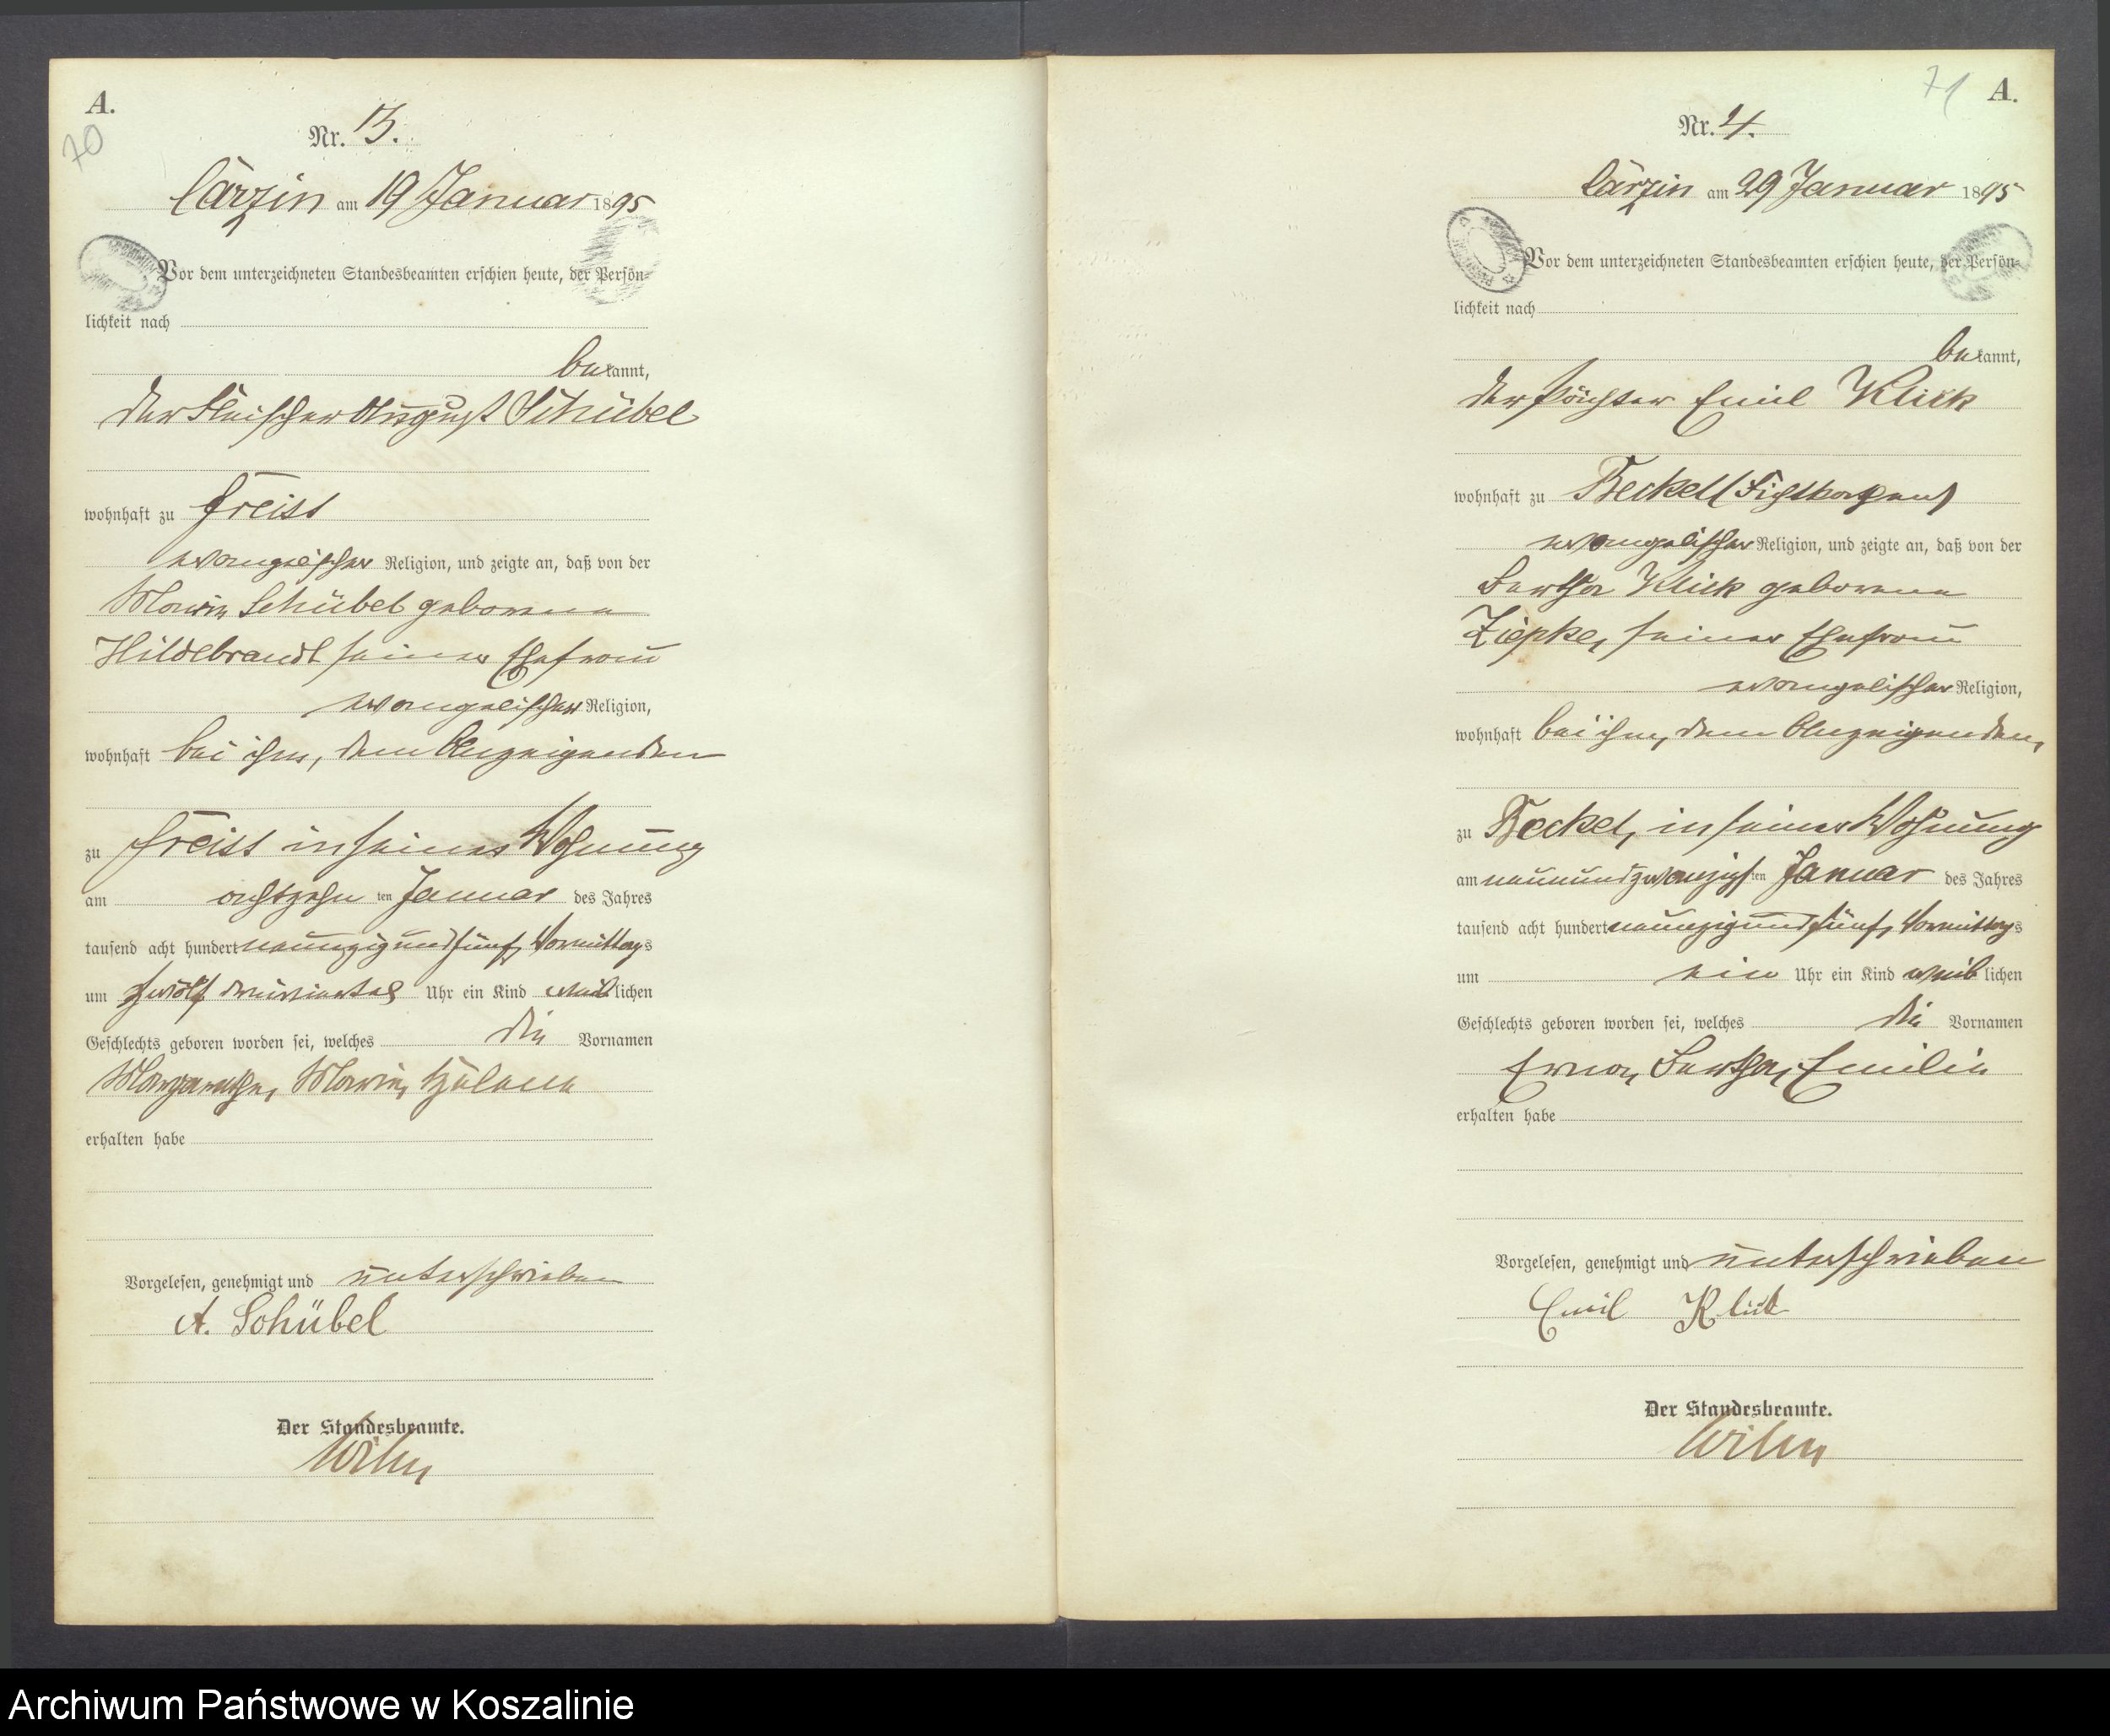 A.
70
Nr. 3.
Cärzin am 19 Januar 1895
Vor dem unterzeichneten Standesbeamten erschien heute, der Persön-
lichkeit nach
bekannt,
der Fleischer August Schübel
wohnhaft zu Freist
evangelischer Religion, und zeigte an, daß von der
Marie Schübel geborene
Hildebrandt seiner Ehefrau
evangelischer Religion,
wohnhaft bei ihm, dem Anzeigenden
zu Freist in seiner Wohnung
am achtzehn ten Januar des Jahres
tausend acht hundert neunzig und fünf, Vormittags
um zwölf dreiviertel Uhr ein Kind weiblichen
Geschlechts geboren worden sei, welches die Vornamen
Margarethe, Marie, Helene
erhalten habe
Vorgelesen, genehmigt und unterschrieben
A. Schübel
Der Standesbeamte.
71
A.
Nr. 4.
Cärzin am 29 Januar 1895
Vor dem unterzeichneten Standesbeamten erschien heute, der Persön-
lichkeit nach
bekannt,
der Pächter Emil Klick
wohnhaft zu Beckel
evangelischer Religion, und zeigte an, daß von der
Bertha Klick geborene
Ziepke, seiner Ehefrau
evangelischer Religion,
wohnhaft bei ihm, dem Anzeigenden,
zu Beckel, in seiner Wohnung
am neunundzwanzigsten Januar des Jahres
tausend acht hundert neunzig und fünf, Vormittags
um ein Uhr ein Kind weiblichen
Geschlechts geboren worden sei, welches die Vornamen
Erna, Bertha, Emilie
erhalten habe
Vorgelesen, genehmigt und unterschrieben
Emil
Der Standesbeamte.
Archiwum Państwowe w Koszalinie